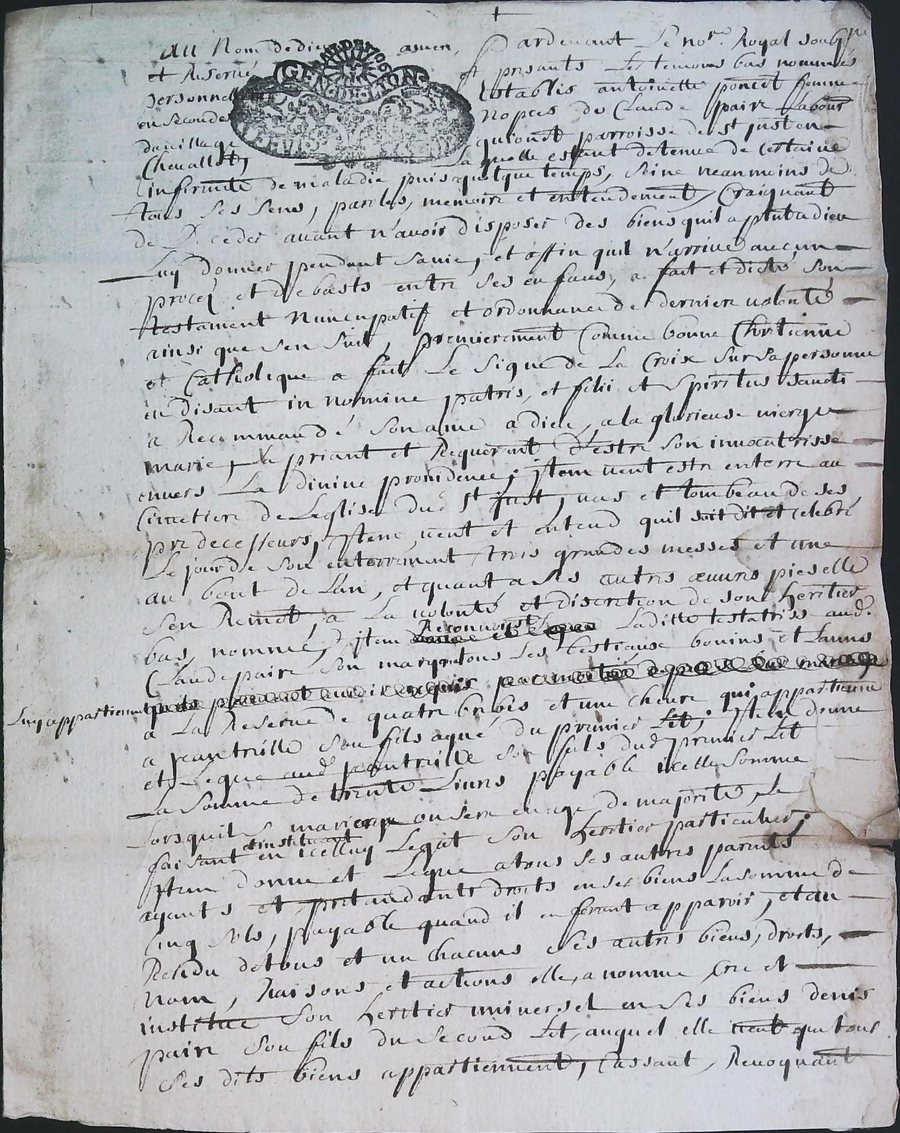 Au Nom de dieu amen, Pardevant Le no.re Royal soubg.ne
et Reservé et presants Les temoins bas nommes
GEN.DE.LION
personnel establis antoinette poncet femme
en secondes nopces de Claude paire Labour
du village quionet parroisse de st just en
Chevallet, Laquelle estant detenue de certaine
infirmite de maladie, puis quelque temps, saine neanmoins de
tous ses sens, paroles, memoire et entendement, Craignant
de D'ceder avant n'avoir disposer des biens quil a plut a dieu
Luy donner pendant sa vie, et affin quil n'arrive aucun
procez et debasts entre ses enfans, a fait et dicté son
testament Nuncupatif et ordonnance de derniere volonté
ainsi que sen suit, premierement Comme bonne Chrétienne
et Catholique a fait Le signe de La Croix sur sa personne
en disant in nomine patris, et filii et spiritus sancti
a Recommandé son ame a dieu, a la glorieuse vierge
marie, La priant et Requerant d'estre son invocatrisse
envers La divine providence; jtem veut estre enterré au
Cimetiere de Leglise dud st just, vas et tombeau de ses
predecesseurs, jtem, veut et entend quil soit dit et celebré
Le jour de son enterrement trois grandes messes et une
au bout de Lan, et quant a ses autres œuvres pies elle
s'en Remet, a La volonté et discretion de son Heritier
bas nommé, jtem Reconnoist Ladite testatrisse aud.
Claude paire son mary tous Les bestiaux bovins et Lanns
Luy appartiennent
a La Reserve de quatre brebis et une chevre qui appartienne
a jean trille son fils agué du premier Lit; jtem donne
et Legue aud jean trille son fils dud premier Lit
La somme de trente Livres payable icelle somme
Lorsquil se mariera ou sera en age de majorité, Le
faisant et instituant en icelluy Legat son Heritier particulier;
jtem donne et Legue a tous ses autres parents
ayants et pretandants droits en ses biens La somme de
Cinq sols, payable quand il en feront apparoir, et au
Residu de tous et un chacuns ses autres biens, droits,
Nom, Raisons et actions elle, a nommé Cre et
institué son Heritier universel en ses biens denis
paire son fils du second Lit, auquel elle veut que tous
ses dits biens appartiennent, Cassant, Revoquant